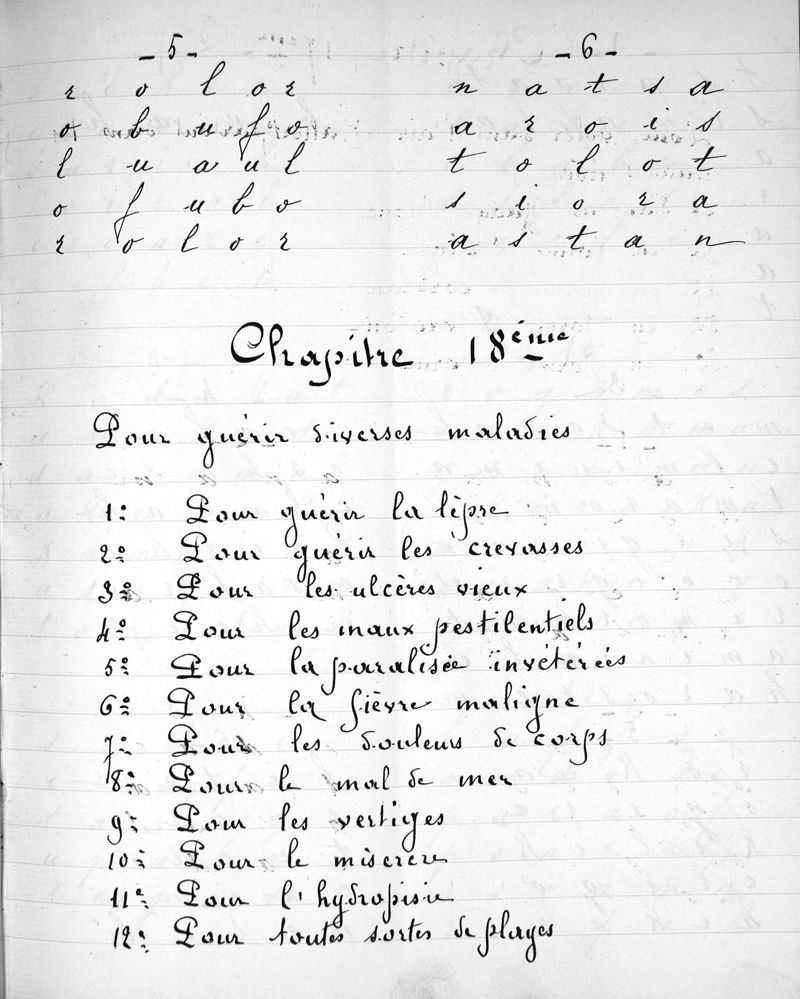 - 5 -
r o l o r
o b u f o
l u a u l
o f u b o
r o l o r
- 6 -
n a t s a
a r o i s
t o l o t
s i o r a
a s t a n
Chapitre 18ème
Pour guérir diverses maladies
1º Pour guérir la lèpre
2º Pour guérir les crevasses
3º Pour les ulcères vieux
4º Pour les maux pestilentiels
5º Pour la paralisie invétérées
6º Pour la fièvre maligne
7º Pour les douleurs de corps
8º Pour le mal de mer
9º Pour les vertiges
10º Pour le miserere
11º Pour l'hydropisie
12º Pour toutes sortes de playes